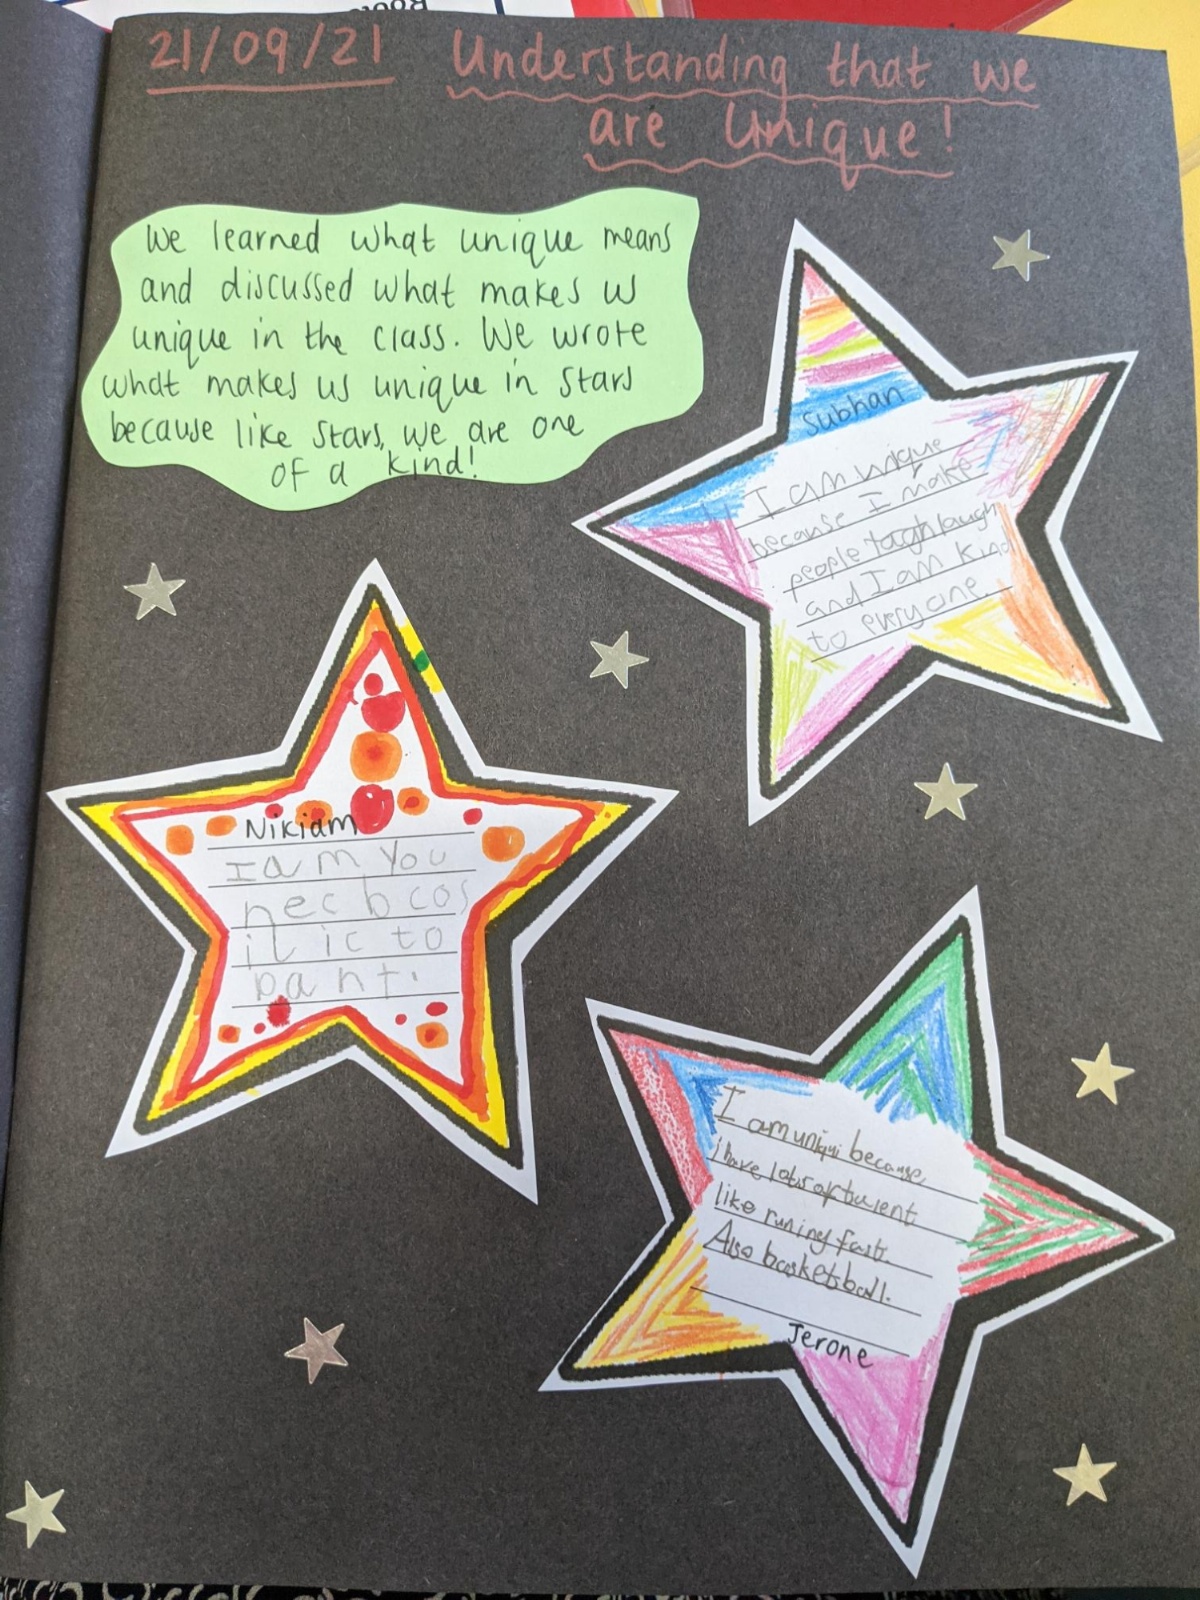 21/09/21 Understanding that we
are Unique!
We learned what unique means
and discussed what makes us
unique in the class. We wrote
what makes us unique in stars
because like stars, we are one
of a kind!
Subhan
I am unique
because I make
people laugh
and I am kind
to everyone.
Nikiam
I am you
nec b cos
i l ic to
pant.
I am uniqui because
i have lots of
like runing fast.
Also basketball.
Jerone